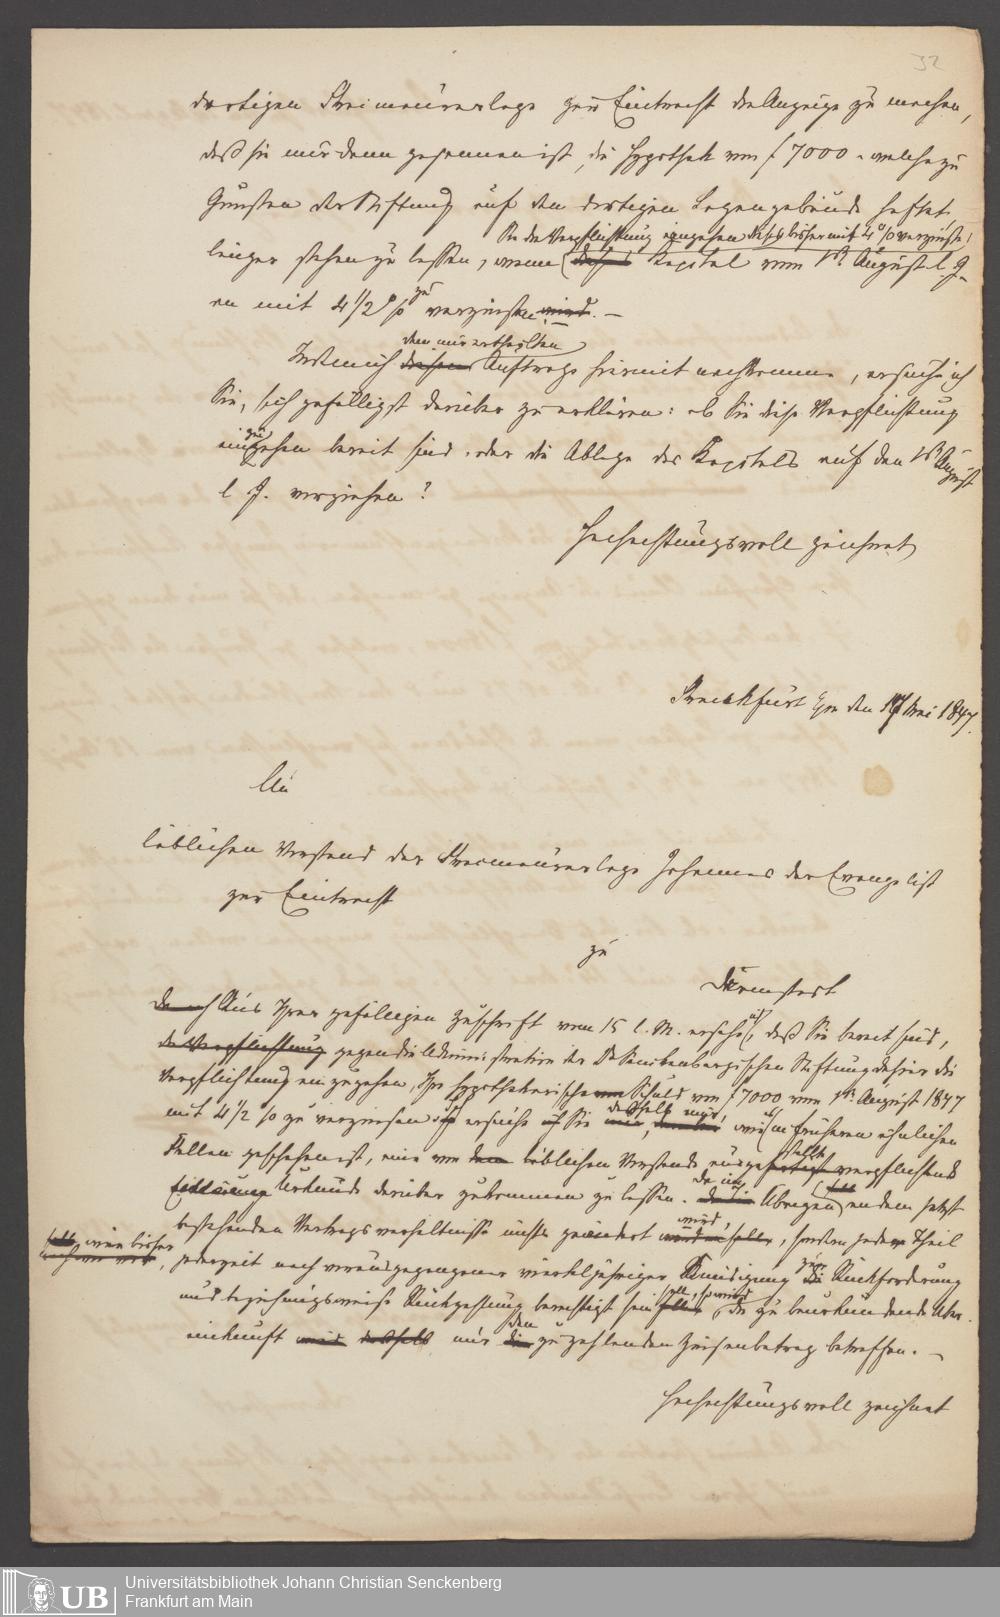 32
dortigen Freimaurerloge zur Eintracht die Anzeige zu machen,
daß sie nur dann gesonnen ist, die Hypothek von f 7000 welche zu
Gunsten der Stiftung auf den dortigen Logengebäude haftet,
Sie die Verpflichtung eingehen dieses bisher mit 4% verzinste
länger stehen zu lassen, wenn dieses Kapital vom 1n August l. J.
an mit 4 1/2 % zu verzinsen wird. —
dem mir ertheilten
Indem ich diesem Auftrage hiermit nachkomme, ersuche ich
Sie, sich gefälligst darüber zu erklären: ob Sie diese Verpflichtung
einzugehen bereit sind, oder die Ablage des Kapitals auf den 1n August
l J. vorziehen?
Hochachtungsvoll zeichnet
Frankfurt a/m den 17 Mai 1847.
An
löblichen Vorstand der Freimaurerloge Johannes der Evangelist
zur Eintracht
zu
Darmstadt
Aus Ihrer gefälligen Zuschrift vom 15 l. M. ersehe ich, daß Sie bereit sind,
die Verpflichtung gegen die Administration der Dr Senckenbergischen Stiftung dahier die
Verpflichtung einzugehen, Ihre hypothekarische Schuld von f 7000 vom 1n August 1847
mit 4 1/2 % zu verzinsen. Ich ersuche Sie deshalb mir, wie in früheren ähnlichen
Fällen geschehen ist, eine von dem löblichen Vorstande ausgestellte verpflichtende
Erklärung Urkunde darüber zukommen zu lassen. Da im Übrigen an dem jetzt
bestehenden Vertragsverhältnisse nichts geändert wird, sondern jeder Theil
wie bisher
, jederzeit nach vorausgegangener vierteljähriger Kündigung zur Rückforderung
und beziehungsweise Rückzahlung berechtigt sein soll, so wird die zu beurkundende Über-
einkunft nur den zu zahlenden Zinsenbetrag betreffen. —
Hochachtungsvoll zeichnet
UB
Universitätsbibliothek Johann Christian Senckenberg
Frankfurt am Main